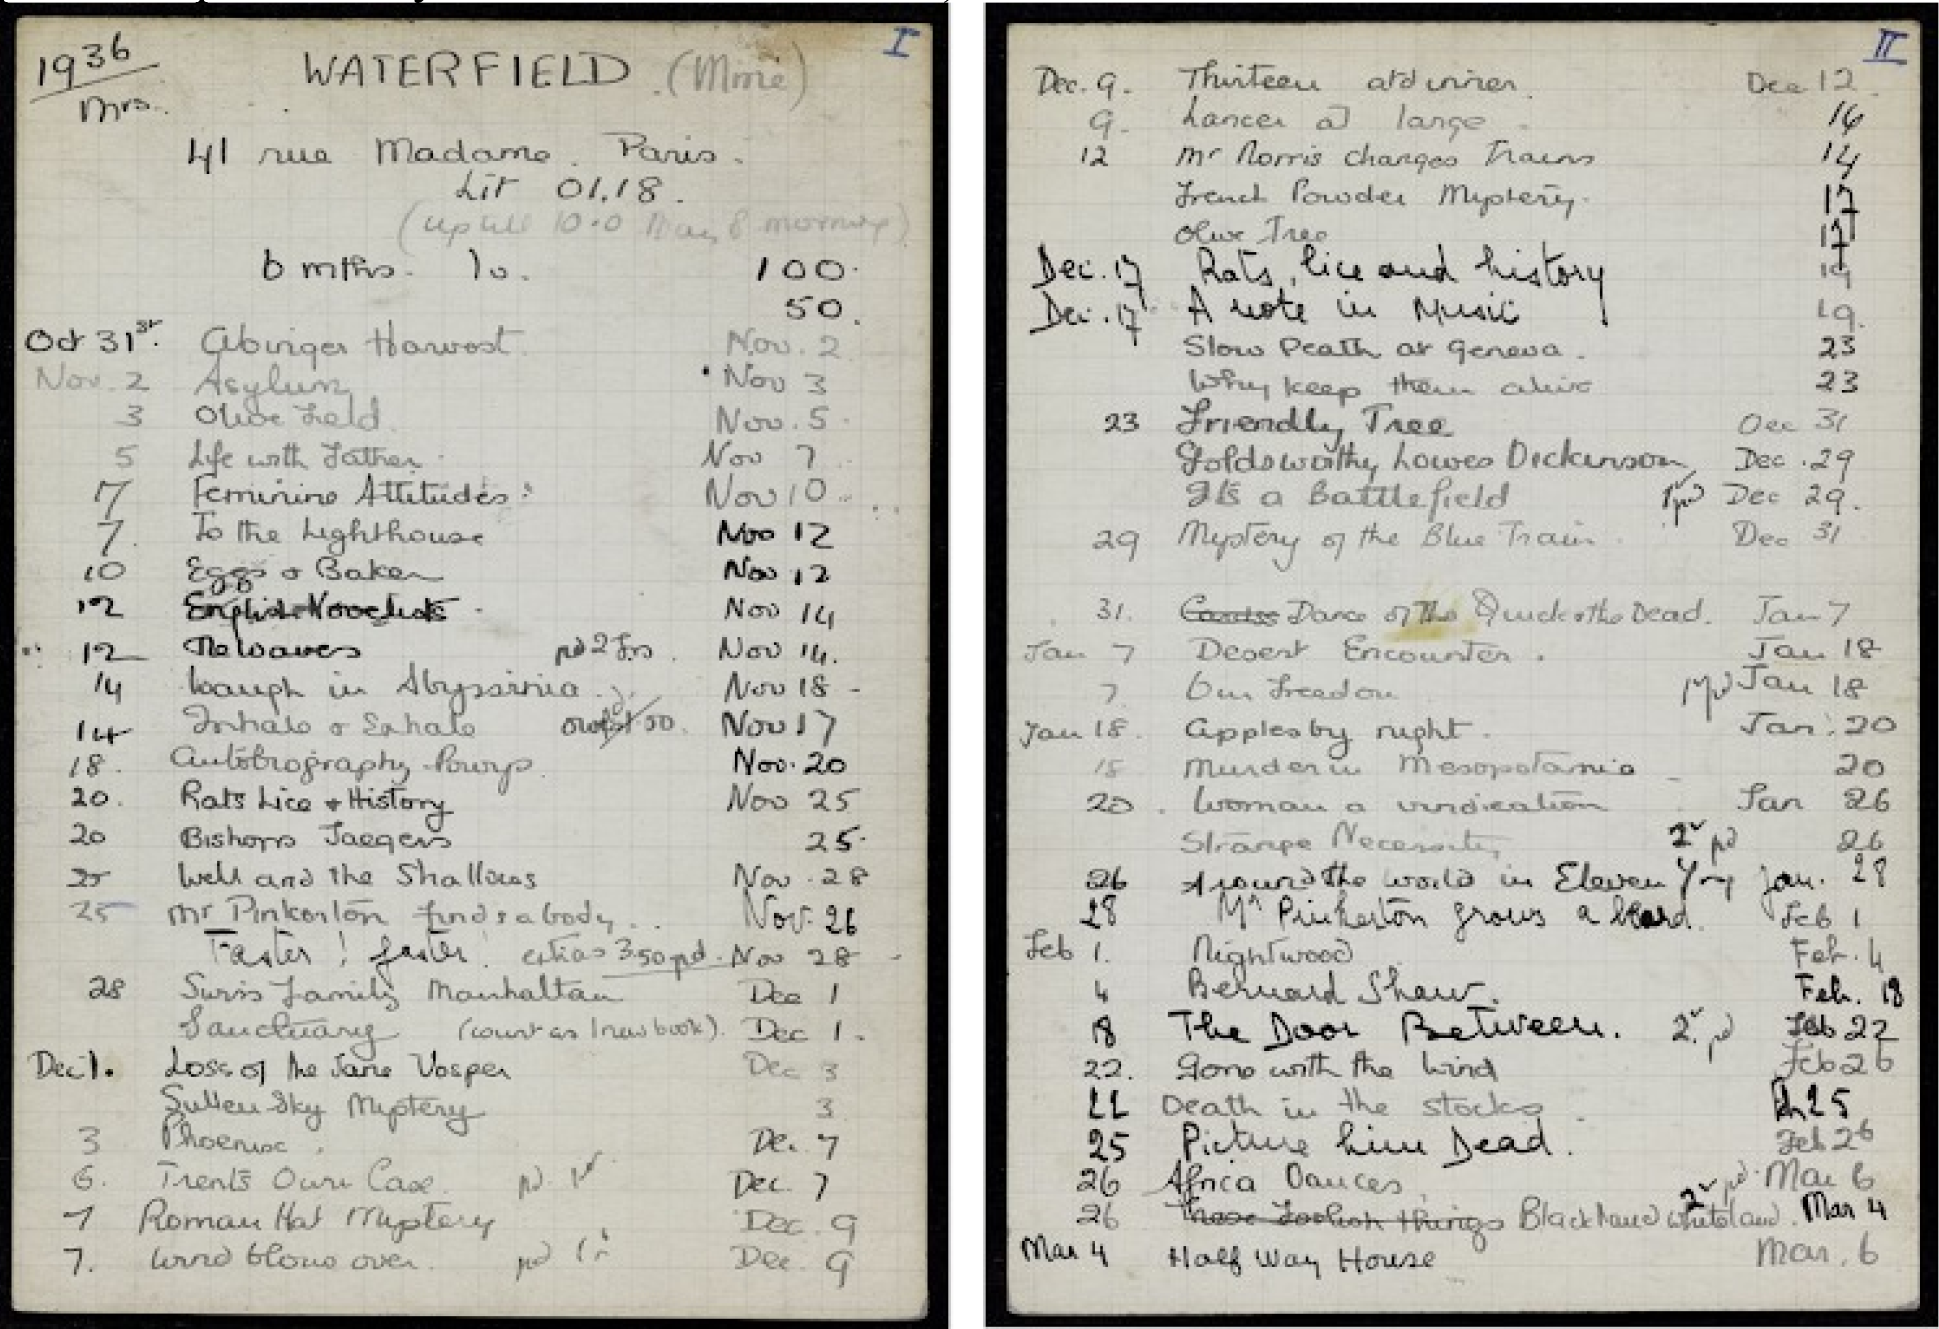 I
1936 WATERFIELD (Mme)
Mrs.
41 rue Madame. Paris.
Lit 01.18.
(up till 10.0 May 8 morning)
6 mths. 1v. 100.
50.
Oct 31st. Abinger Harvest Nov. 2
Nov. 2 Asylum Nov 3
3 Olive Field. Nov. 5.
5 Life with Father. Nov 7
7 Feminine Attitudes. Nov 10
7. To the Lighthouse Nov 12
10 Eggs & Baker Nov 12
12 English Novelists Nov 14
12 The Waves pd 2 frs. Nov 14.
14 Waugh in Abyssinia. Nov 18
14 Inhale & Exhale Nov 17
18. Autobiography Powys. Nov. 20
20. Rats Lice & History Nov 25
20 Bishops Jaegers 25.
25 Well and the Shallows Nov. 28
25 Mr Pinkerton finds a body. Nov. 26
Faster! faster! extras 3.50 pd. Nov 28
28 Swiss Family Manhattan Dec 1
Sanctuary (count as 1 new book). Dec 1.
Dec 1. Loss of the Jane Vosper Dec 3
Sullen Sky Mystery 3.
3 Phoenix. De. 7
6. Trent's Own Case. pd Dec. 7
7 Roman Hat Mystery Dec. 9
7. Wind blows over. pd 1fr Dec. 9
II
Dec. 9. Thirteen at dinner. Dec 12.
9. Lancer at large. 14
12 Mr Norris changes Trains 14
French Powder Mystery. 17
Olive Tree 17
Dec. 17 Rats, lice and history 19
Dec. 17 A note in Music 19.
Slow Death at Geneva. 23
Why keep them alive 23
23 Friendly Tree Dec 31
Goldsworthy Lowes Dickinson Dec. 29
It's a Battlefield 1 pd Dec 29.
29 Mystery of the Blue Train. Dec 31
31. Dance of the Quick & the Dead. Jan 7
Jan 7 Desert Encounter. Jan 18
7. Our Freedom Jan 18
Jan 18. Apples by night. Jan. 20
18 Murder in Mesopotamia 20
20. Woman a vindication Jan 26
Strange Necessity 2fr pd 26
26 Around the world in Eleven Yrs Jan. 28
28 Mr Pinkerton grows a beard. Feb 1
Feb 1. Nightwood Feb. 4
4 Bernard Shaw. Feb. 18
18 The Door Between. 2fr pd Feb 22
22. Gone with the Wind Feb 26
22 Death in the stocks. Feb 25
25 Picture him Dead. Feb 26
26 Africa Dances 2fr pd. Mar 6
26 These Foolish things Black land white land. Mar 4
Mar 4 Half Way House Mar. 6